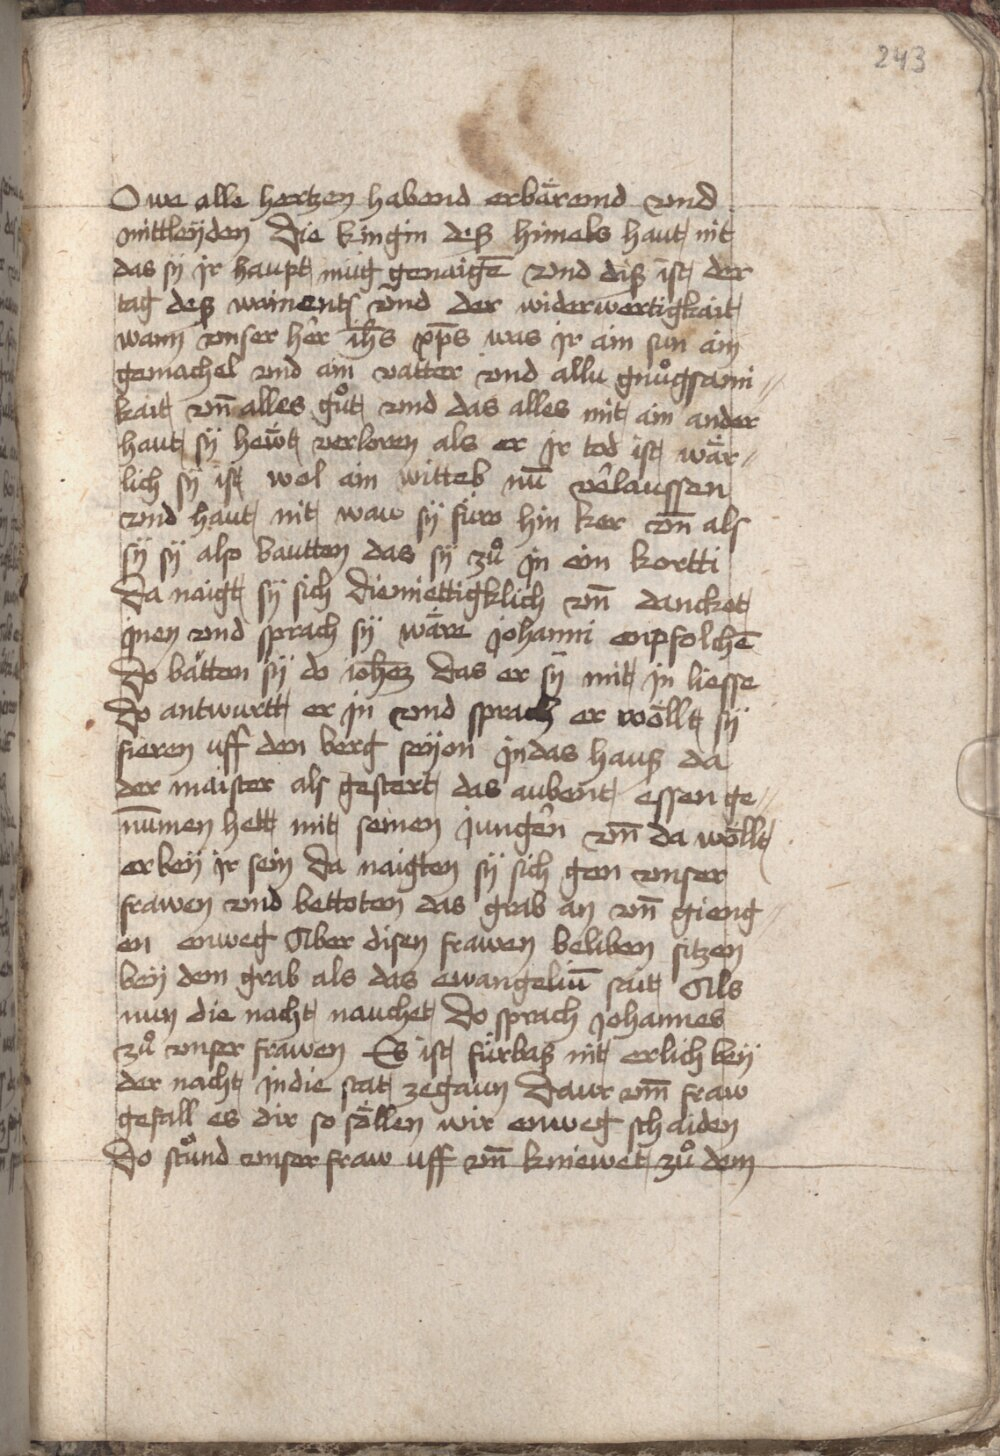 243
O we alle hertzen habend erbärmd vnd
mittleÿden Die kingin deß himels haut nit
das sÿ jr haupt müg genaigē vnd diß ist der
tag deß wainents vnd der widerwertigkait
wann vnser hêr ih̄s xp̄s was jr ain sun ain
gemachel vnd ain vatter vnd allu gnůgsami //
kait vn̄ alles gůt vnd das alles mit ain ander
haut sÿ hewt verloren als er jr tod ist wär //
lich sÿ ist wol ain witteb nū v̂laussen
vnd haut nit wau sÿ füro hin ker vn̄ als
sÿ sÿ also bautten das sÿ zů jn ein kertti
Da naigt sÿ sich diemiettigklich vn̄ dancket
jnen vnd sprach sÿ wäre johanni enpfolchē
Do bätten sÿ do ioh̄ez das er sÿ mit jn liesse
Do antwurtt er jn vnd sprach er wöllt sÿ
fieren uff den berg sÿon jn das hauß da
der maister als gestert das aubent essen ge //
nūmen hett mit seinen jungên vn̄ da wöllt
er beÿ jr sein Da naigten sÿ sich gen vnser
frawen vnd bettoten das grab an vn̄ gieng //
en enweg Aber disen frawen beliben sitzen
beÿ dem grab als das ewangeliū sait Als
nun die nacht nauchet Do sprach johannes
zů vnser frawen Es ist fürbaß nit erlich beÿ
der nacht jn die stat zegaun Daur vm̄ fraw
gefall es dir so söllen wir enweg schaiden
Do stůnd vnser fraw uff vn̄ kniewet zů dem